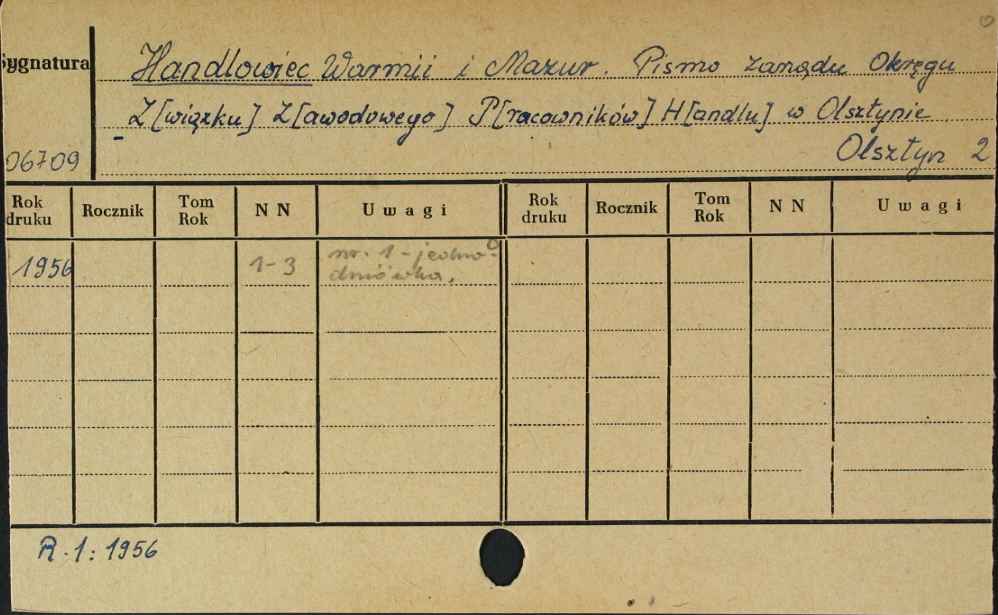 Sygnatura
Handlowiec Warmii i Mazur. Pismo Zarządu Okręgu
Z[wiązku] Z[awodowego] P[racowników] H[andlu] w Olsztynie
06709
Olsztyn 2
Rok druku Rocznik Tom Rok N N Uwagi Rok druku Rocznik Tom Rok N N Uwagi
1956 1-3 nr. 1 - jedno-
dniówka.
R. 1: 1956